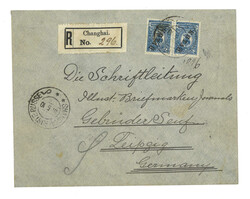 Changhai.
R No. 296.
Die Schriftleitung
Illustr. Briefmarken Journals
Gebrüder Senf
Leipzig
Germany